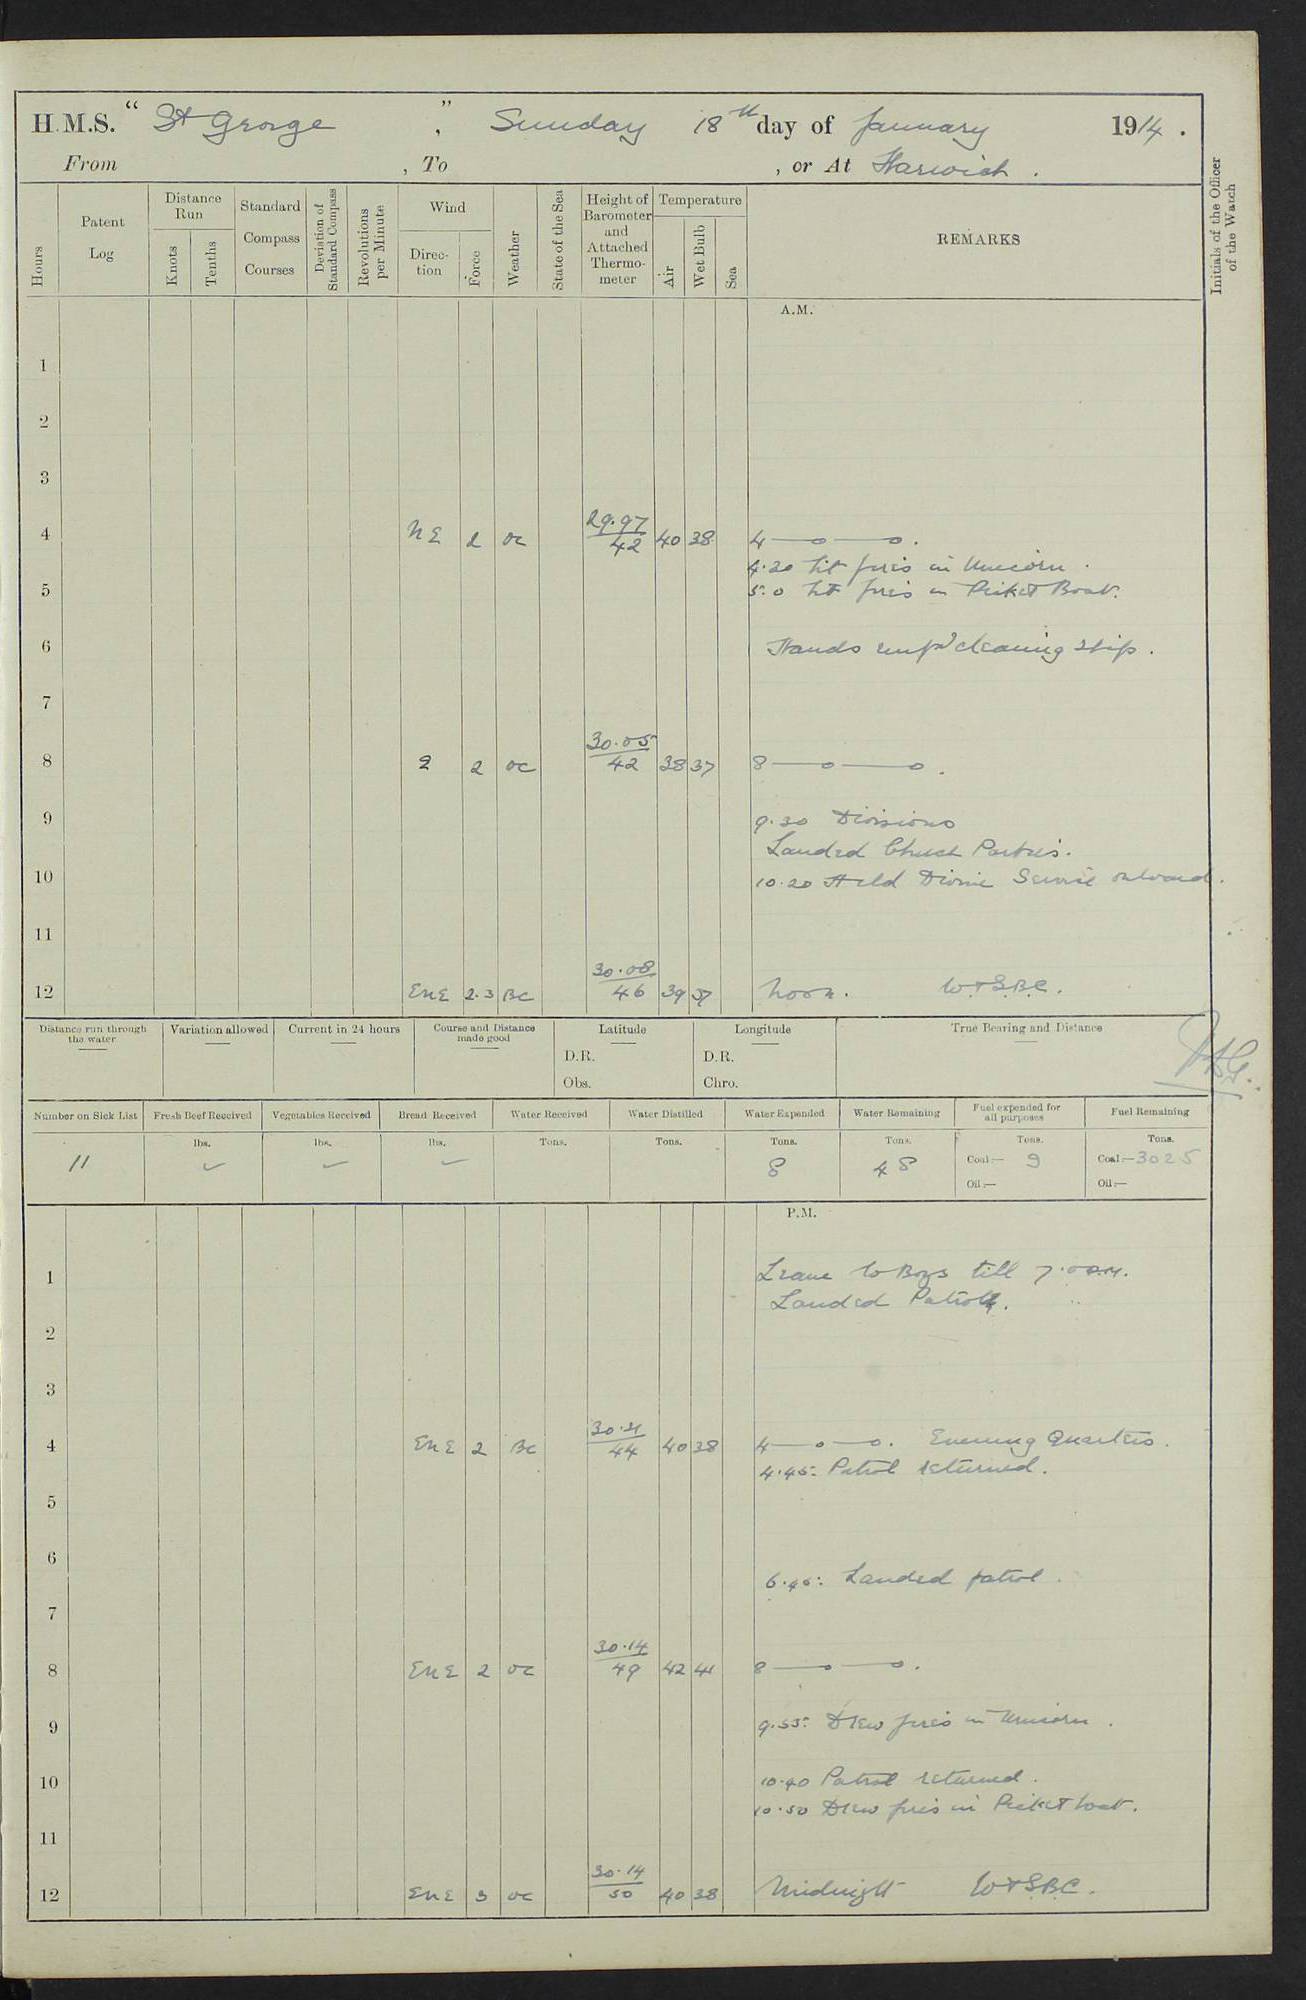 H.M.S. "St George", Sunday 18th day of January 1914.
From , To , or At Harwich.
Hours
Patent Log
Distance Run
Knots
Tenths
Standard Compass Courses
Deviation of Standard Compass
Revolutions per Minute
Wind
Direction
Force
Weather
State of the Sea
Height of Barometer and Attached Thermometer
Temperature
Air
Wet Bulb
Sea
REMARKS
Initials of the Officer of the Watch
A.M.
1
2
3
4 NE 2 oc 29.97/42 40 38 4 —o—o.
4.20 Lit fires in Unicorn.
5 5.0 Lit fires in Picket Boat.
6 Hands emp'd cleaning ship.
7
8 2 2 oc 30.05/42 38 37 8 —o—o.
9 9.30 Divisions
Landed Church Parties.
10 10.20 Held Divine Service onboard.
11
12 ENE 2.3 BC 30.08/46 39 37 Noon. W+S.B.C.
Distance run through the water
Variation allowed
Current in 24 hours
Course and Distance made good
Latitude
D.R.
Obs.
Longitude
D.R.
Chro.
True Bearing and Distance
Number on Sick List
Fresh Beef Received
Vegetables Received
Bread Received
Water Received
Water Distilled
Water Expended
Water Remaining
Fuel expended for all purposes
Fuel Remaining
lbs. lbs. lbs. Tons. Tons. Tons. Tons. Tons. Tons.
11 ✓ ✓ ✓ 8 48 Coal:— 9 Coal:— 3025
Oil:— Oil:—
P.M.
1 Leave to Boys till 7.0 P.M.
Landed Patrol.
2
3
4 ENE 2 BC 44 40 38 4 —o—o. Evening Quarters.
4.45: Patrol returned.
5
6
6.45: Landed patrol.
7
8 ENE 2 oc 30.14/49 42 41 8 —o—o.
9 9.55: Drew fires in Unicorn.
10 10.40 Patrol returned.
10.50 Drew fires in Picket boat.
11
12 ENE 3 oc 30.14/50 40 38 Midnight W+S.B.C.